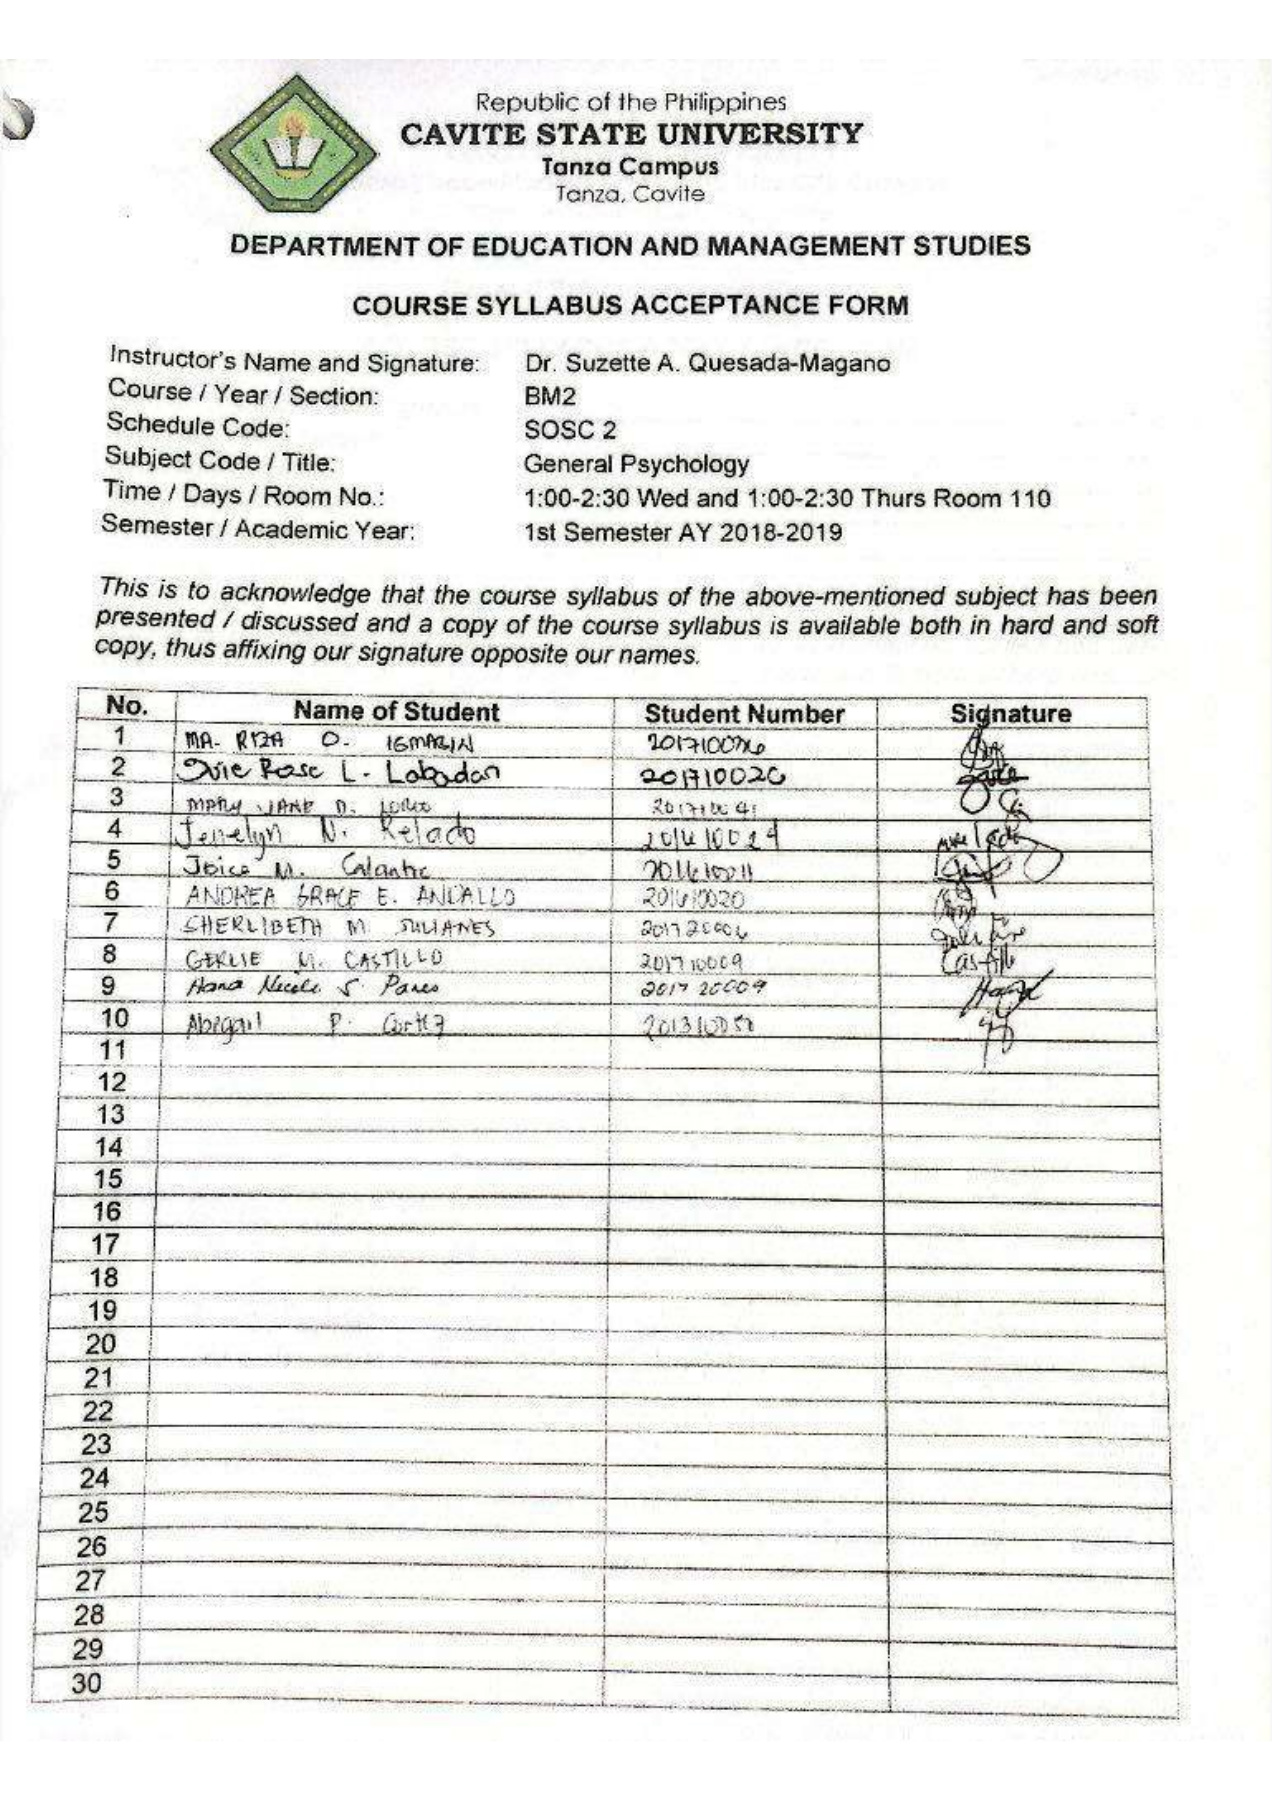 Republic of the Philippines
CAVITE STATE UNIVERSITY
Tanza Campus
Tanza, Cavite
DEPARTMENT OF EDUCATION AND MANAGEMENT STUDIES
COURSE SYLLABUS ACCEPTANCE FORM
Instructor's Name and Signature: Dr. Suzette A. Quesada-Magano
Course / Year / Section: BM2
Schedule Code: SOSC 2
Subject Code / Title: General Psychology
Time / Days / Room No.: 1:00-2:30 Wed and 1:00-2:30 Thurs Room 110
Semester / Academic Year: 1st Semester AY 2018-2019
This is to acknowledge that the course syllabus of the above-mentioned subject has been
presented / discussed and a copy of the course syllabus is available both in hard and soft
copy, thus affixing our signature opposite our names.
No. Name of Student Student Number Signature
1 MA. RIZA O. IGMARIN
2 Rose L. Labadan 201710026
3 MARY JANE D. 201710041
4 Jennelyn N. Relado 201610029
5 Joice M. Calantic 201610011
6 ANDREA GRACE E. ANCALLO 201610020
7 SHERLIBETH M JULIANES 201720006
8 GERLIE M. CASTILLO 201710009 Castillo
9 Hana Nicole S. Pares 201720009
10 Abegail P. Cortez
11
12
13
14
15
16
17
18
19
20
21
22
23
24
25
26
27
28
29
30